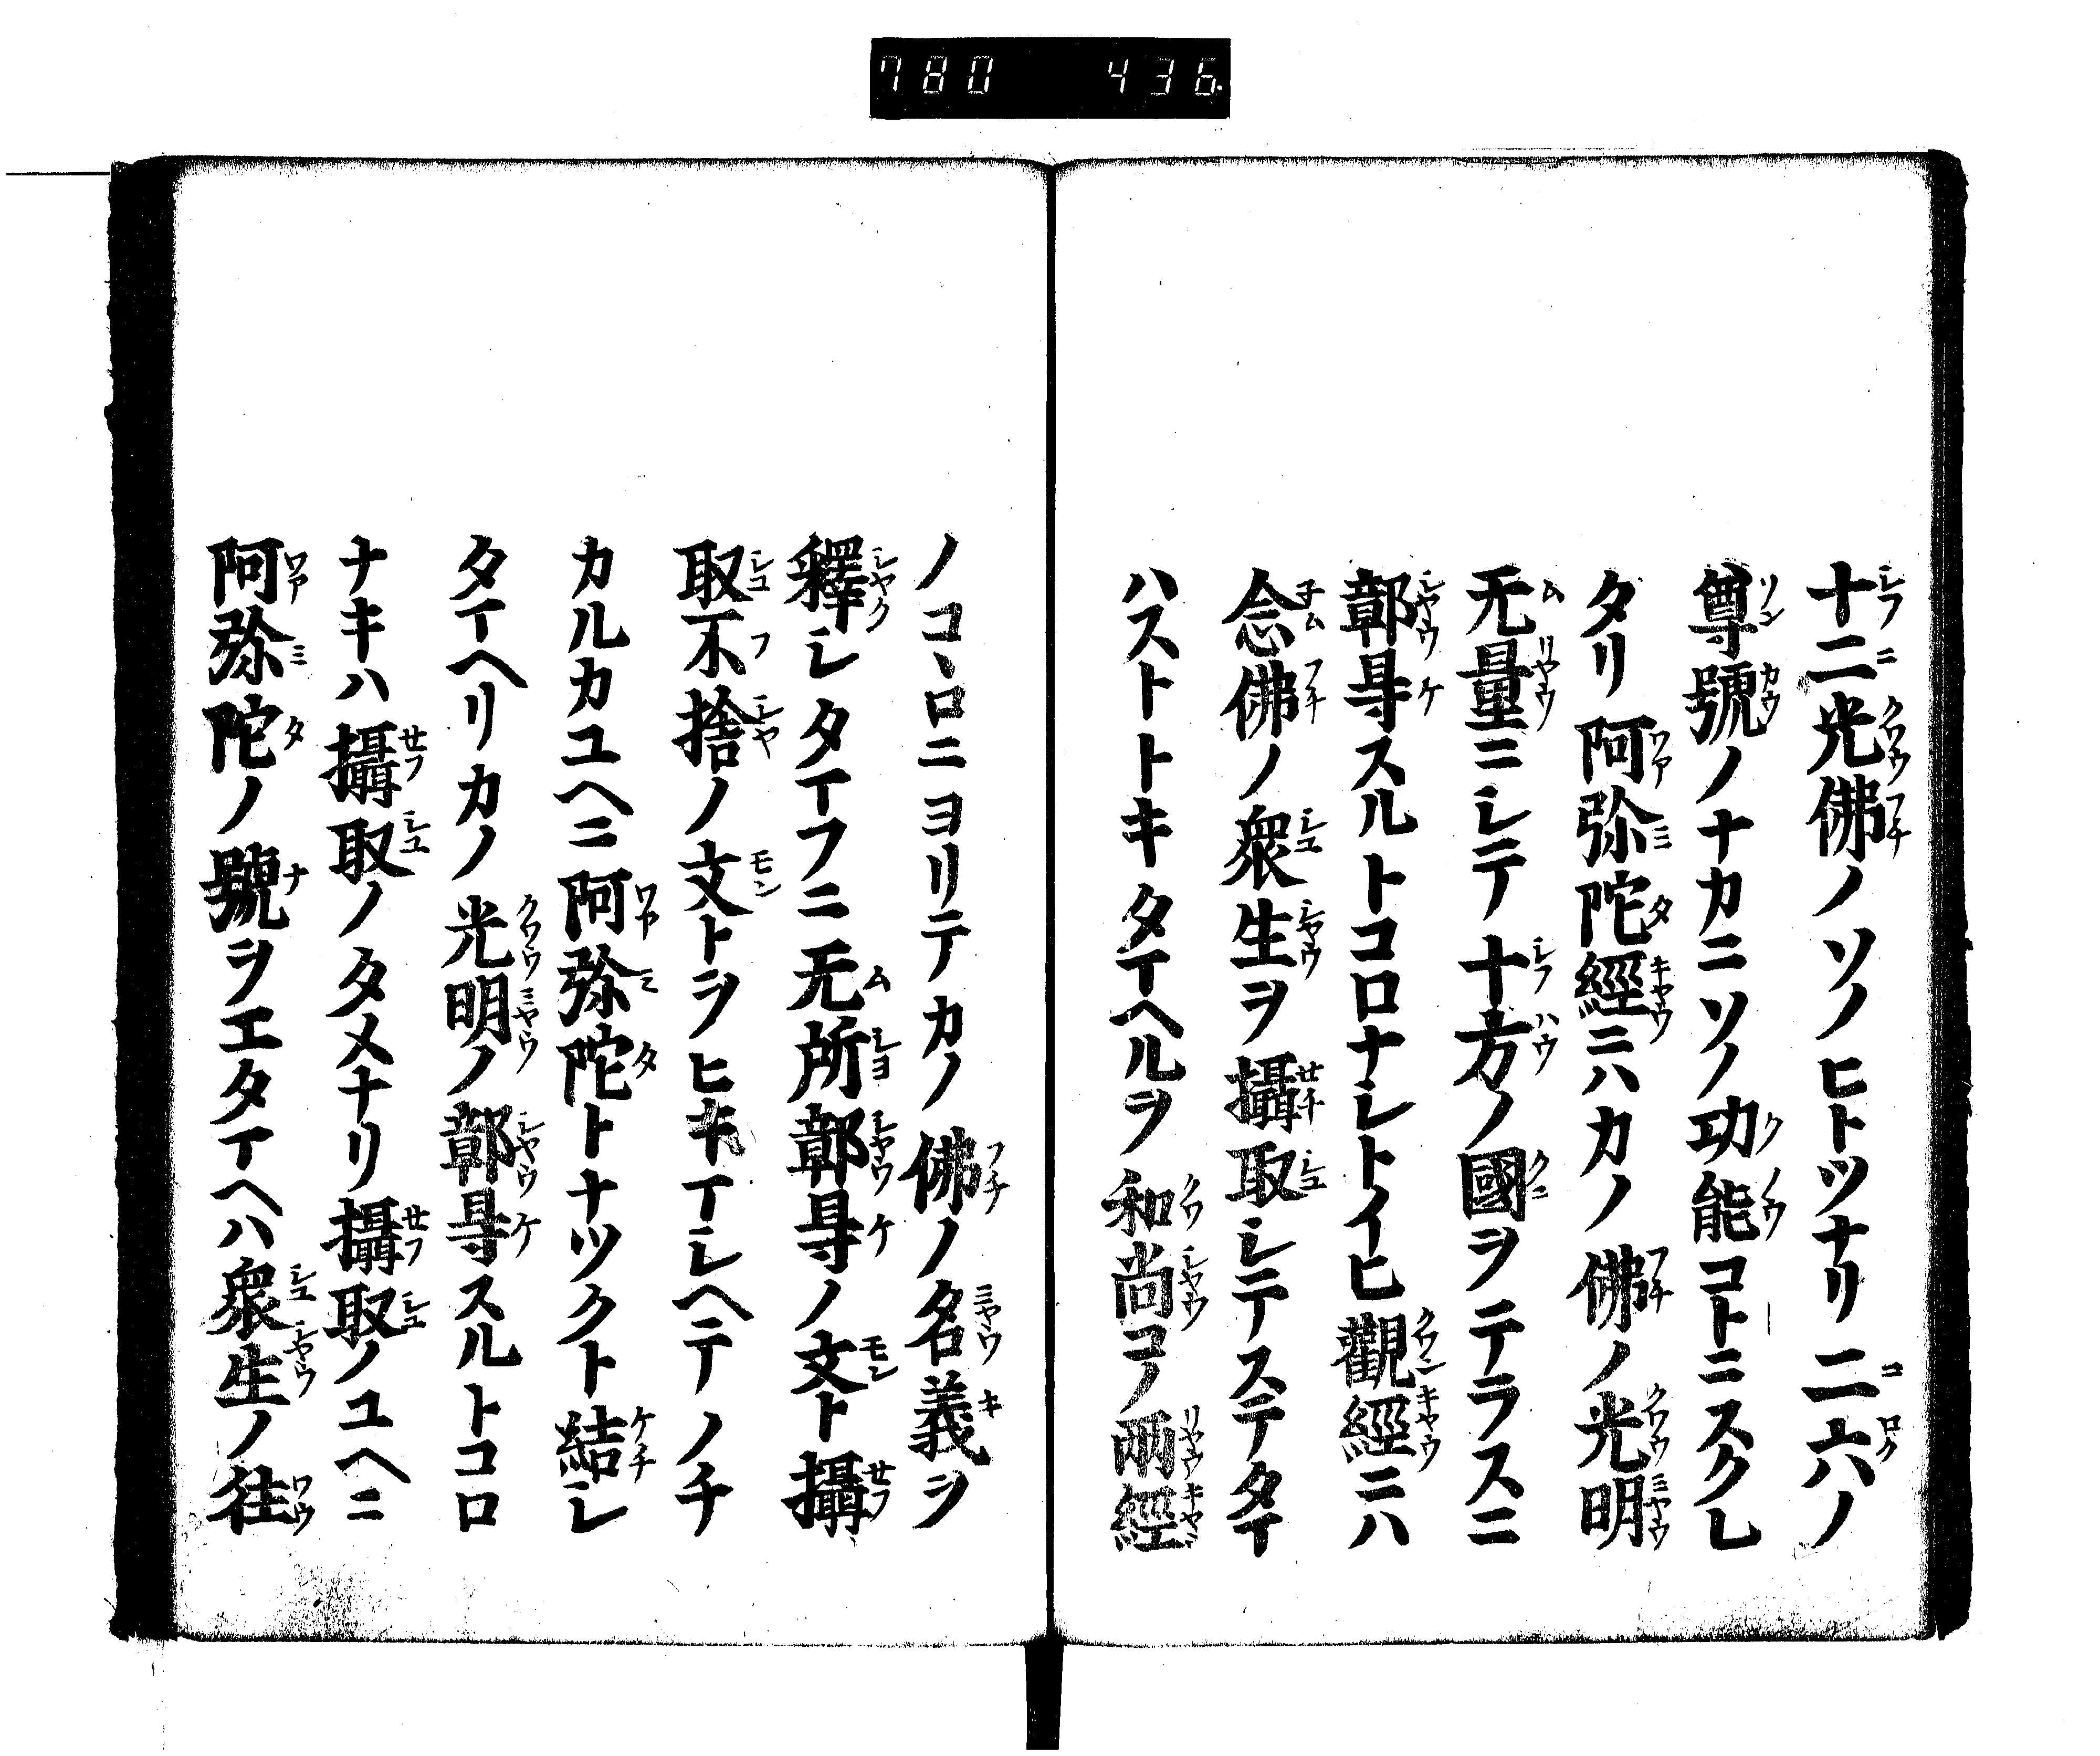 780 436
十二光佛ノソノヒトツナリ二六ノ
尊號ノナカニソノ功能コトニスクレ
タリ阿弥陀經ニハカノ佛ノ光明
无量ニシテ十方ノ國ヲテラスニ
鄣㝵スルトコロナシトイヒ觀經ニハ
念佛ノ衆生ヲ攝取シテステタマ
ハストトキタマヘルヲ和尚コノ兩經
ノコヽロニヨリテカノ佛ノ名義ヲ
釋シタマフニ无所鄣㝵ノ文ト攝
取不捨ノ文トヲヒキマシヘテノチ
カルカユヘニ阿弥陀トナツクト結シ
タマヘリカノ光明ノ鄣㝵スルトコロ
ナキハ攝取ノタメナリ攝取ノユヘニ
阿弥陀ノ號ヲエタマヘハ衆生ノ往